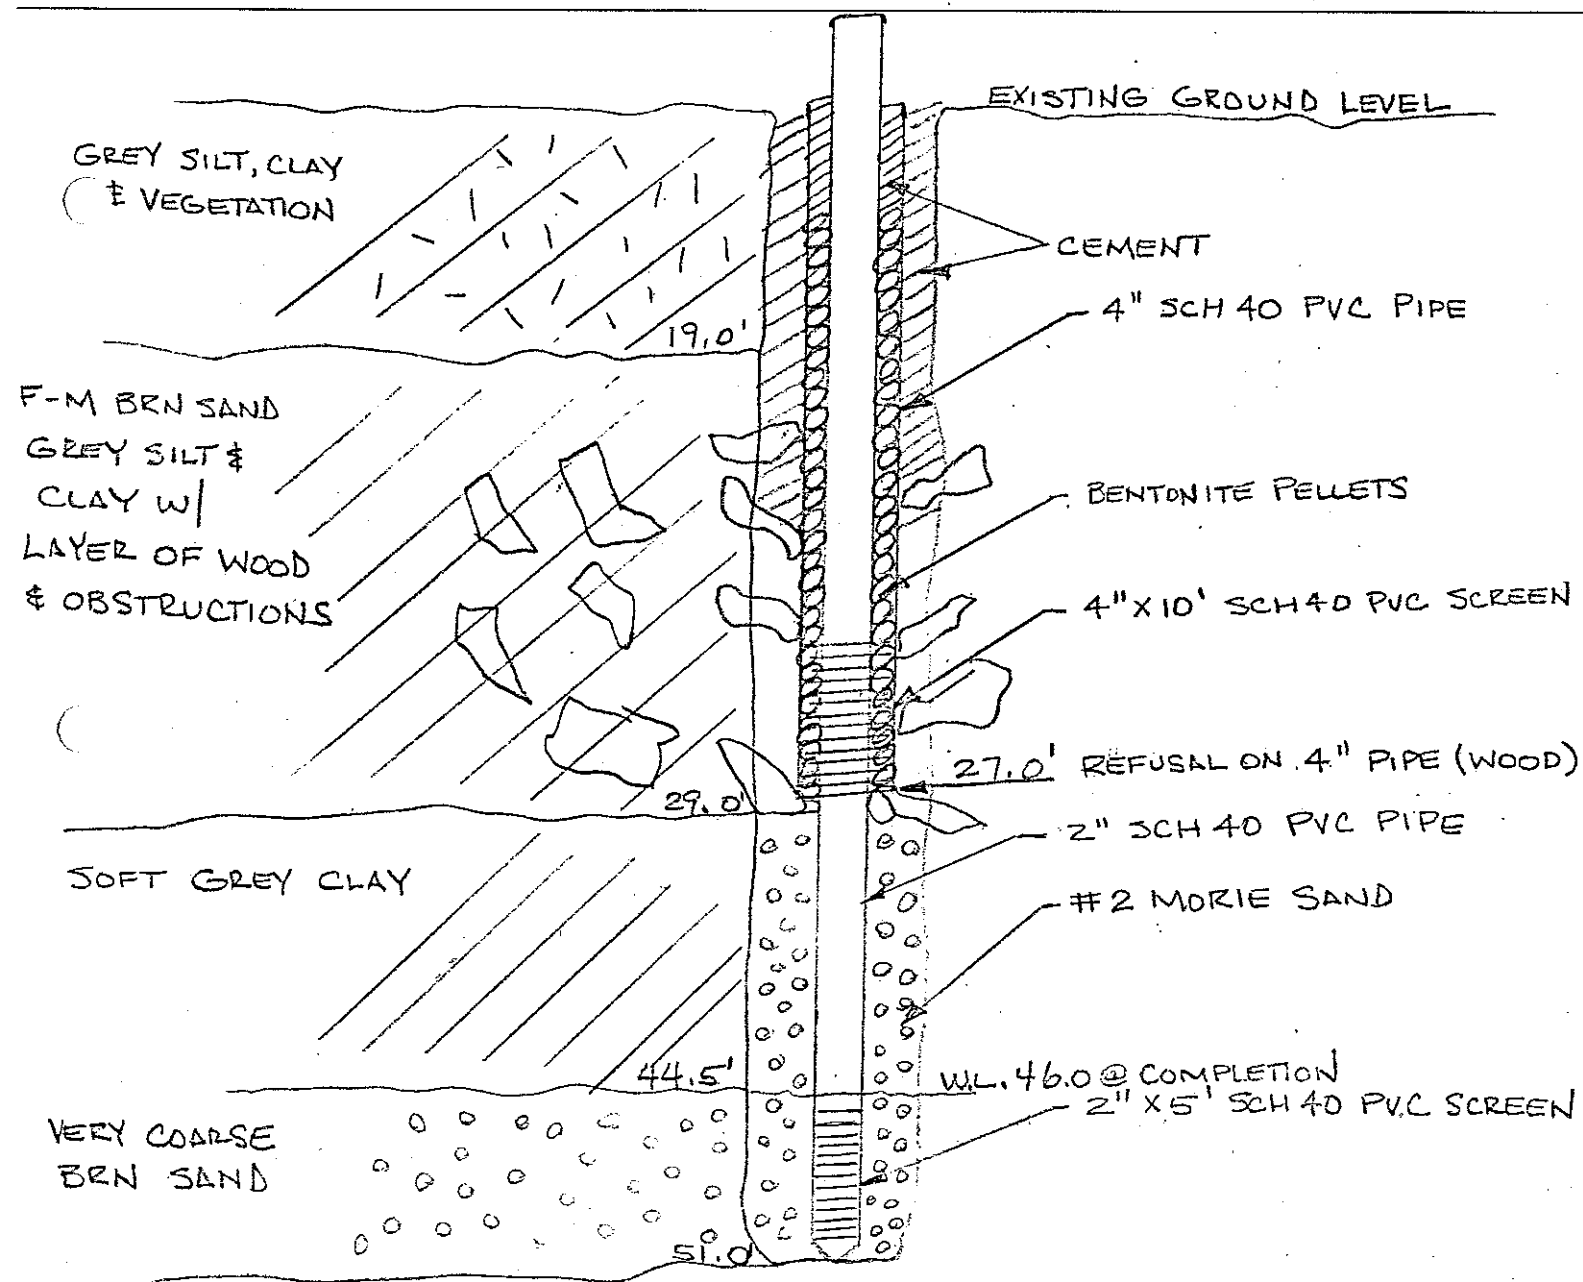 EXISTING GROUND LEVEL
GREY SILT, CLAY
& VEGETATION
CEMENT
4" SCH 40 PVC PIPE
19.0'
F-M BRN SAND
GREY SILT &
CLAY W/
LAYER OF WOOD
& OBSTRUCTIONS
BENTONITE PELLETS
4" X 10' SCH 40 PVC SCREEN
27.0' REFUSAL ON 4" PIPE (WOOD)
29.0'
2" SCH 40 PVC PIPE
SOFT GREY CLAY
#2 MORIE SAND
44.5'
W.L. 46.0 @ COMPLETION
2" X 5' SCH 40 PVC SCREEN
VERY COARSE
BRN SAND
51.0'